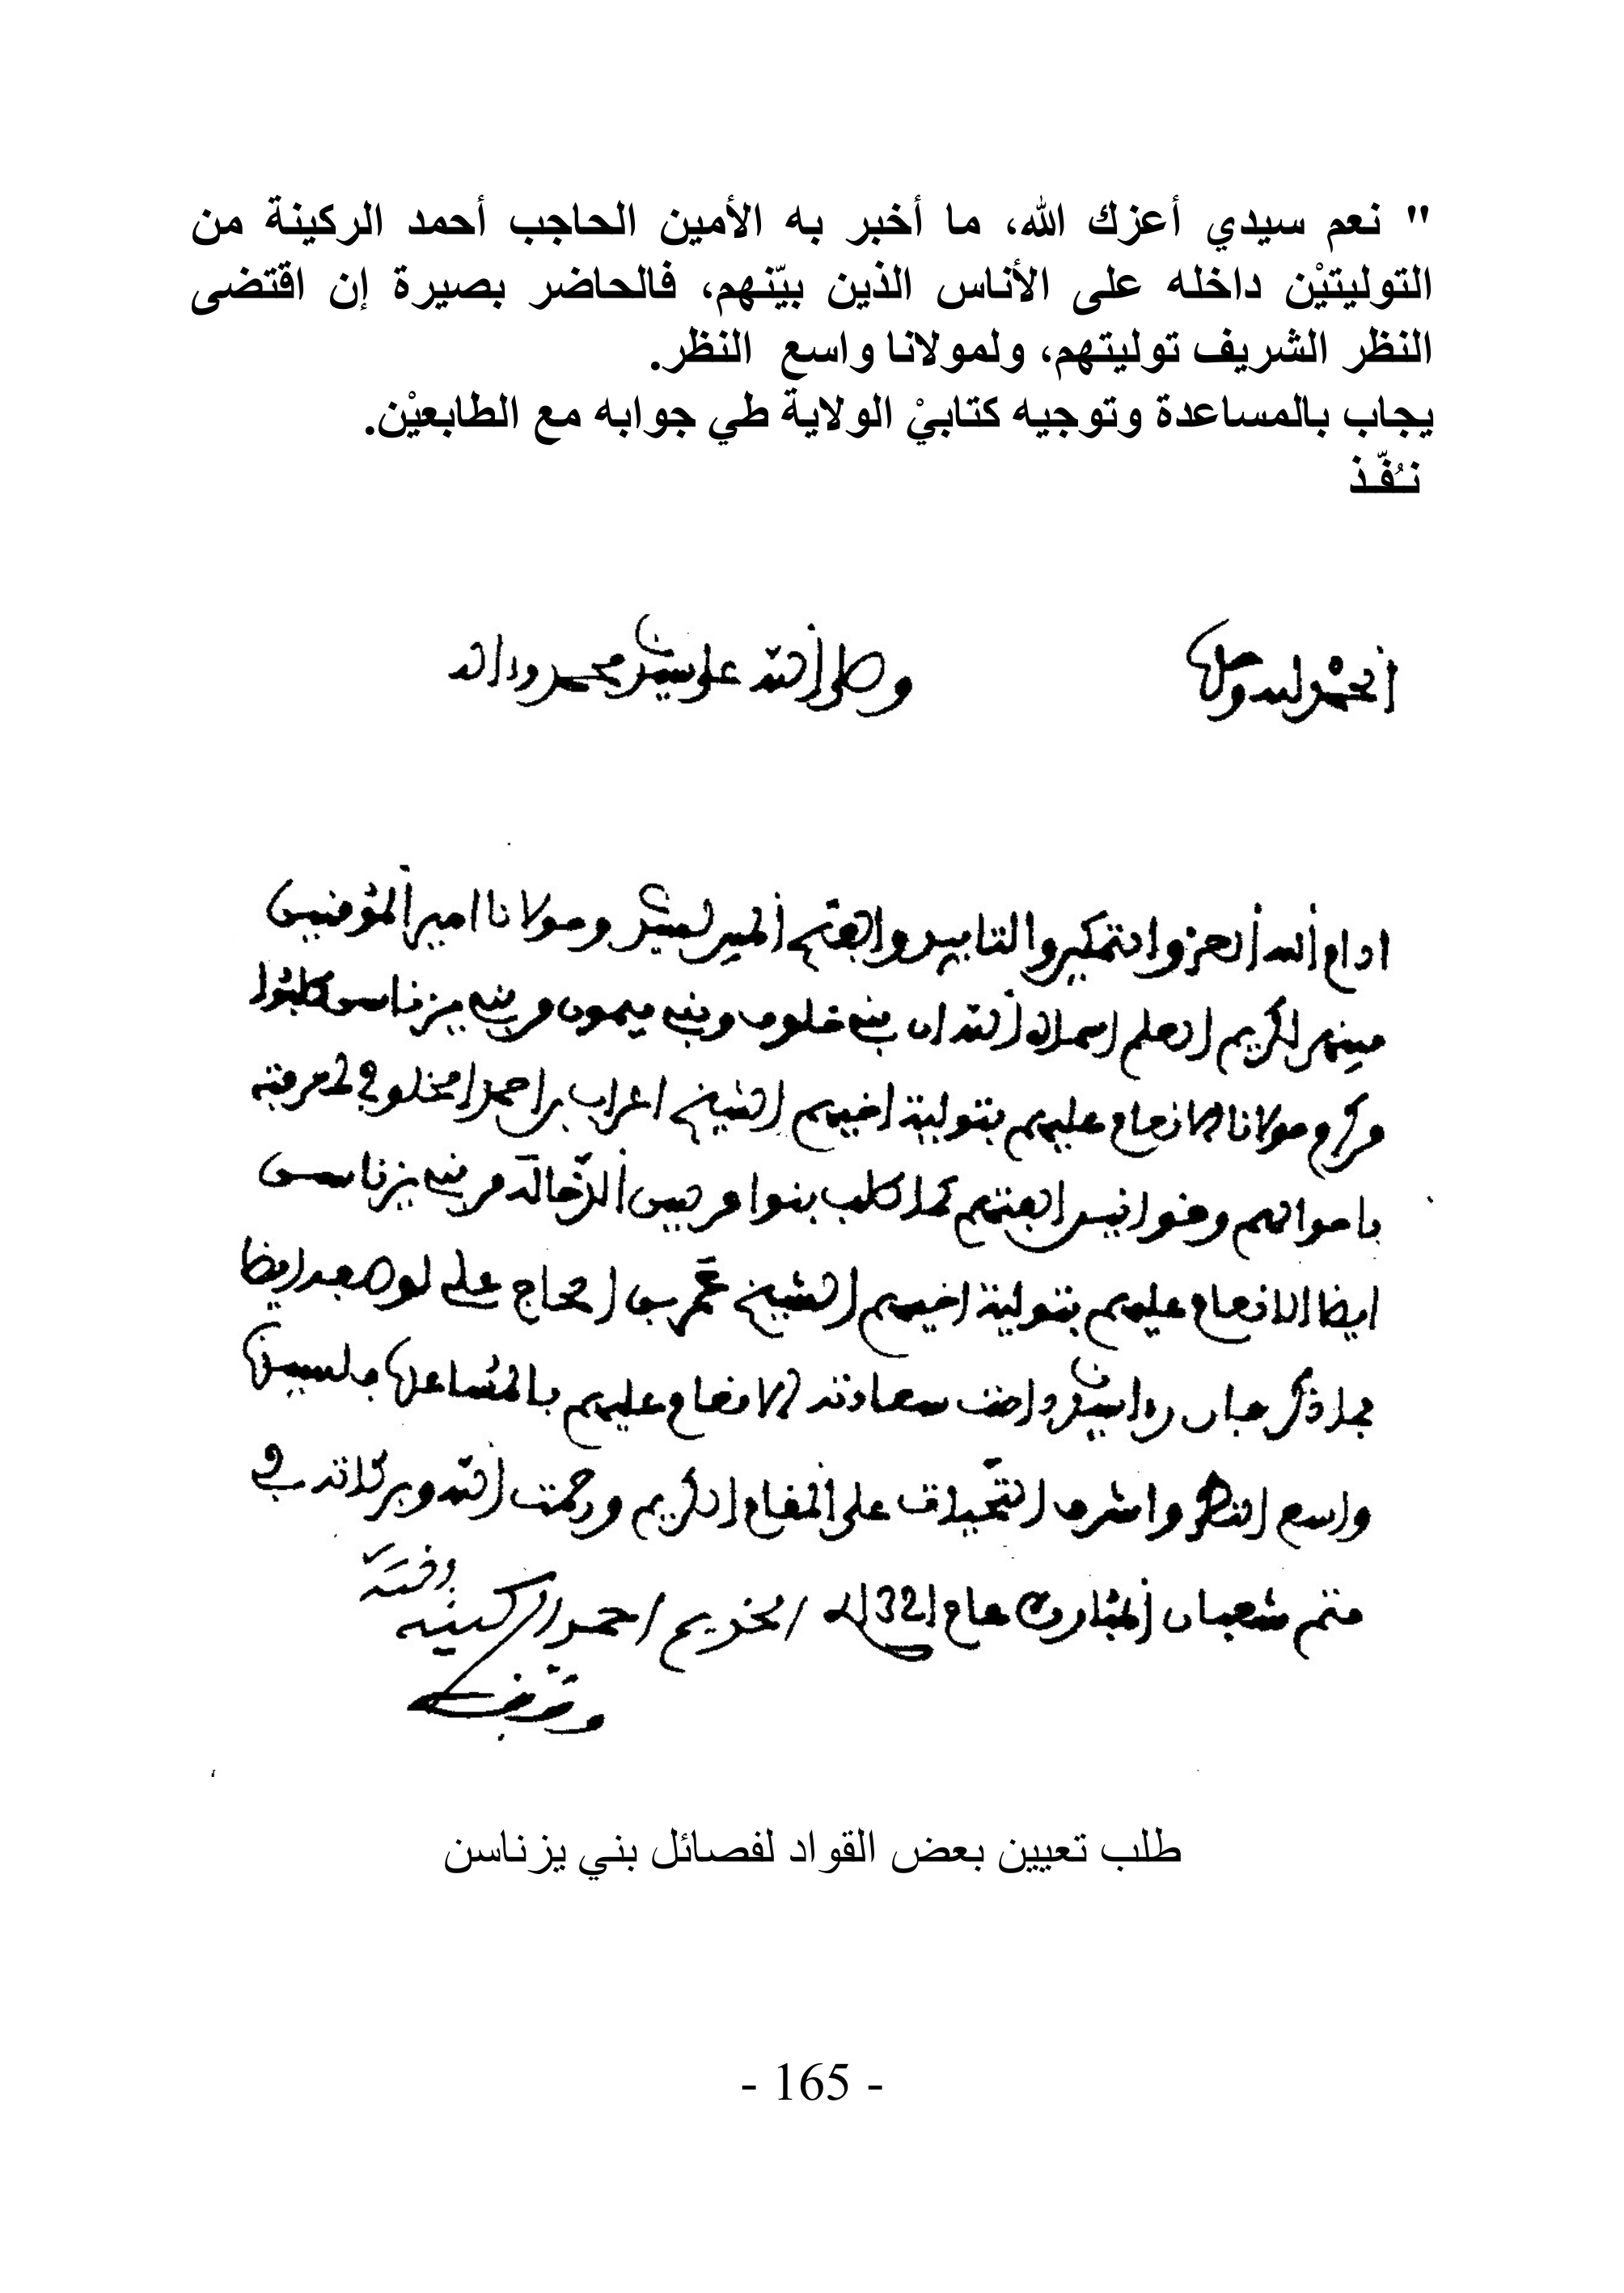 " نعم سيدي أعزك الله، ما أخبر به الأمين الحاجب أحمد الركينة من
التوليتيْن داخله على الأناس الذين بيّنهم، فالحاضر بصيرة إن اقتضى
النظر الشريف توليتهم، ولمولانا واسع النظر.
يجاب بالمساعدة وتوجيه كتابيْ الولاية طي جوابه مع الطابعيْن.
نُفّذ
الحمد لله وحده
وصلى الله على سيدنا محمد وءاله
ادام الله العز والتمكين والتاييد والفتح المبين لسيدنا ومولانا امير المومنين
الكريم اسماه الله ان بني خلوف وبني ميمون من بني يزناسن طلبوا
من مولانا الانعام عليهم بتولية اخيهم الشيخ اعراب بن احمد المخلوفي
كما طلب بنوا من بني يزناسن
ايضا الانعام عليهم بتولية اخيهم الشيخ عمر بن الحاج علي ايضا
سيدنا سعادته الانعام عليهم بالمساعدة فلسيدنا
واسع النظر واشرف التحيات على المقام الكريم ورحمت الله وبركاته في
متم شعبان المبارك عام 1321 الخديم احمد الركينه
وفقه
طلب تعيين بعض القواد لفصائل بني يزناسن
- 165 -